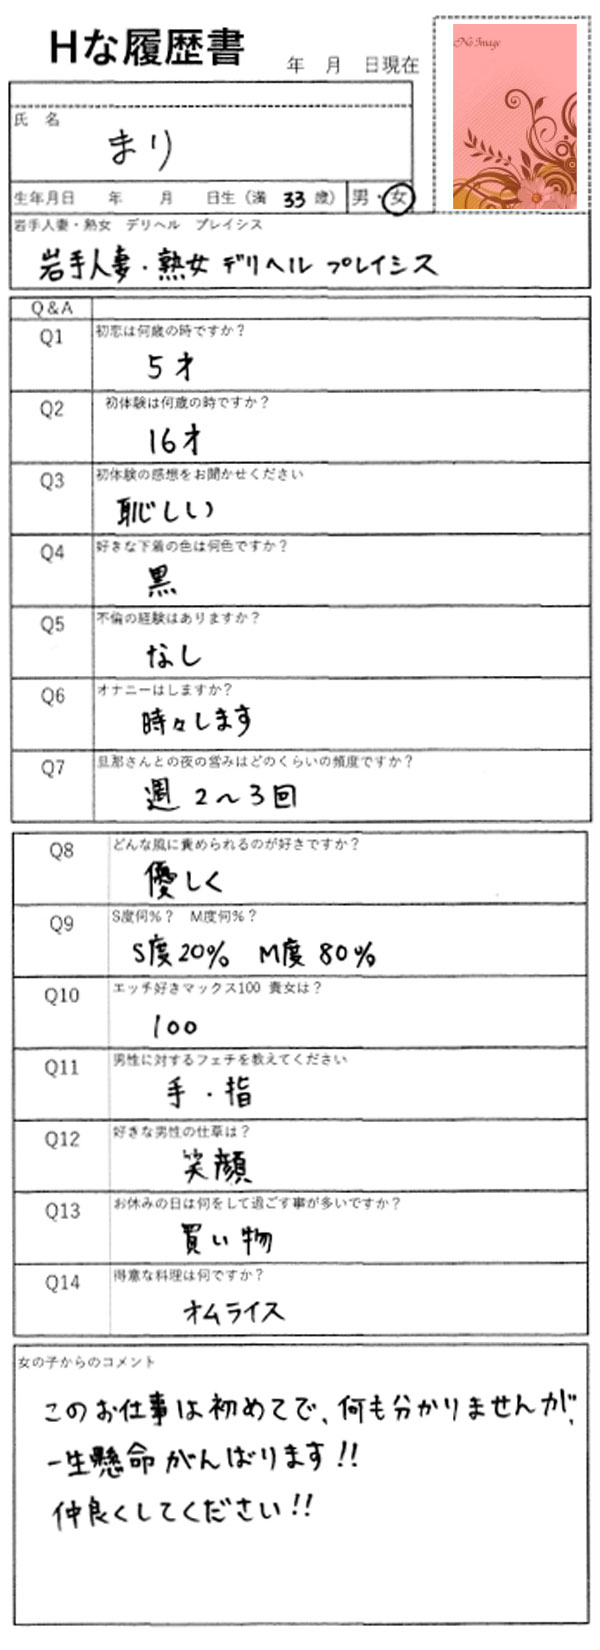 Hな履歴書
年 月 日現在
No Image
氏 名
まり
生年月日 年 月 日生 (満 33 歳) 男・女
岩手人妻・熟女 デリヘル プレイシス
岩手人妻・熟女 デリヘル プレイシス
Q&A
Q1 初恋は何歳の時ですか?
5才
Q2 初体験は何歳の時ですか?
16才
Q3 初体験の感想をお聞かせください
恥しい
Q4 好きな下着の色は何色ですか?
黒
Q5 不倫の経験はありますか?
なし
Q6 オナニーはしますか?
時々します
Q7 旦那さんとの夜の営みはどのくらいの頻度ですか?
週2〜3回
Q8 どんな風に責められるのが好きですか?
優しく
Q9 S度何%? M度何%?
S度20% M度80%
Q10 エッチ好きマックス100 貴女は?
100
Q11 男性に対するフェチを教えてください
手・指
Q12 好きな男性の仕草は?
笑顔
Q13 お休みの日は何をして過ごす事が多いですか?
買い物
Q14 得意な料理は何ですか?
オムライス
女の子からのコメント
このお仕事は初めてで、何も分かりませんが、
一生懸命がんばります!!
仲良くしてください!!